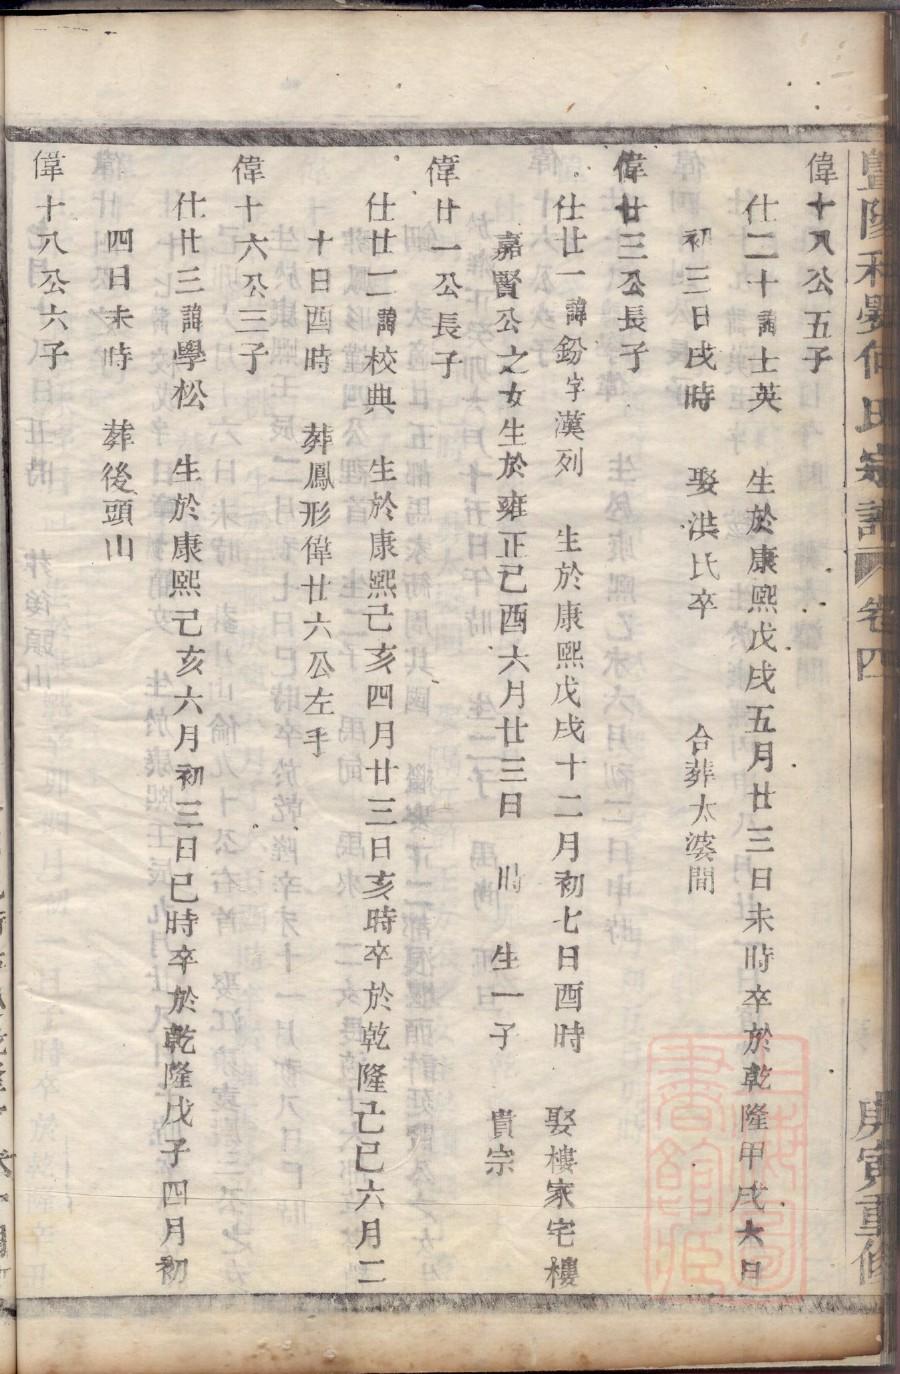 暨陽和晏何氏宗譜 卷四 庚寅重修
偉十八公五子
仕二十諱士英 生於康熙戊戌五月廿三日未時卒於乾隆甲戌六月
初三日戌時 娶洪氏卒 合葬太婆間
偉廿三公長子
仕廿一諱鈖字漢列 生於康熙戊戌十二月初七日酉時 娶樓家宅樓
嘉賢公之女生於雍正己酉六月廿三日 時 生一子 貴宗
偉廿一公長子
仕廿二諱校典 生於康熙己亥四月廿三日亥時卒於乾隆己巳六月二
十日酉時 葬鳳形偉廿六公左手
偉十六公三子
仕廿三諱學松 生於康熙己亥六月初三日巳時卒於乾隆戊子四月初
四日未時 葬後頭山
偉十八公六子
上海圖書館藏